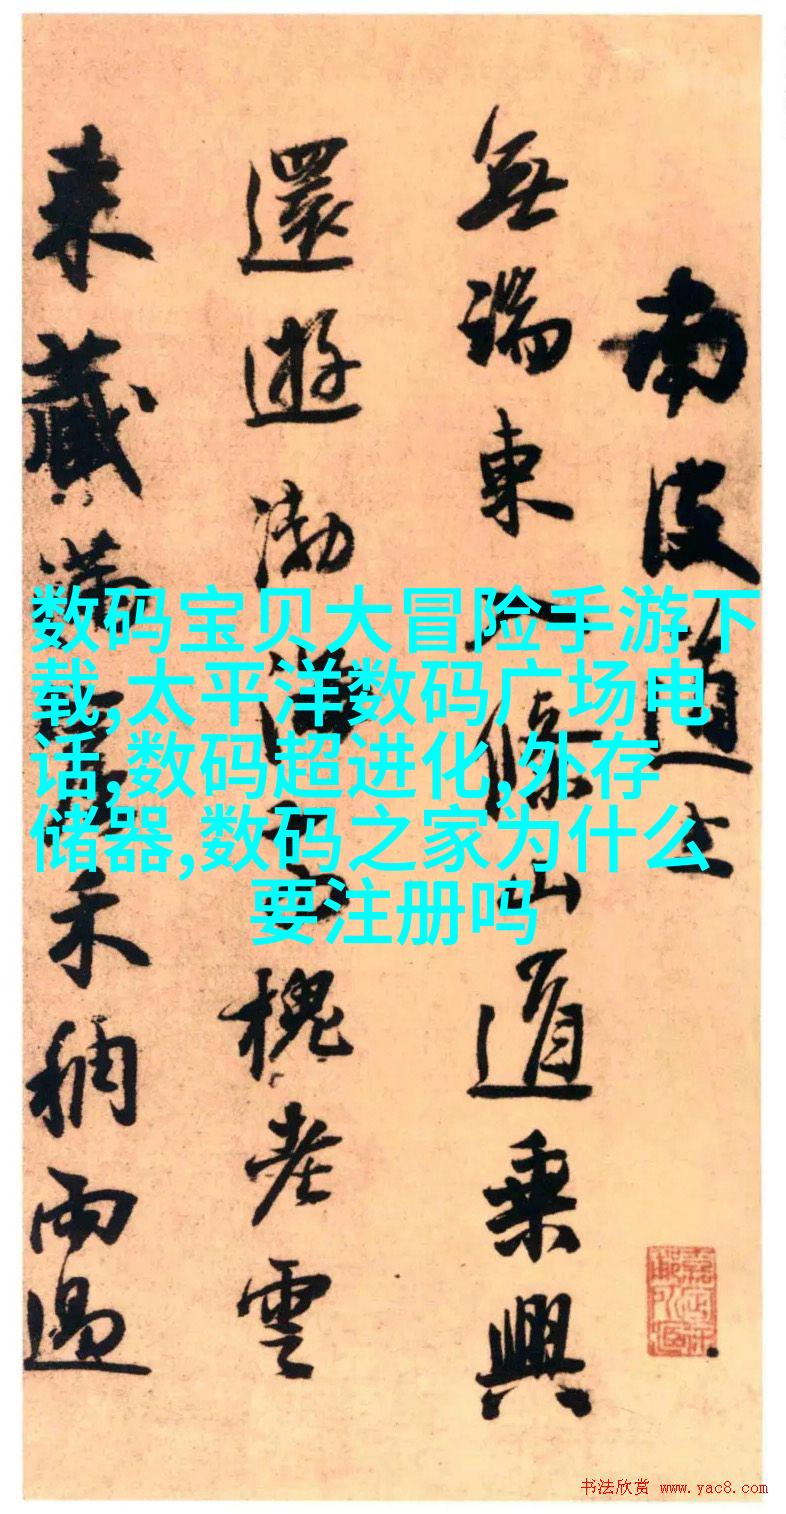 南皮道上
無端東入條山道乘興
還遊渤海槐老雲
来藏禾稠雨過
数码宝贝大冒险手游下
载,太平洋数码广场电
话,数码超进化,外存
储器,数码之家为什么
要注册吗
书法欣赏 www.yac8.com